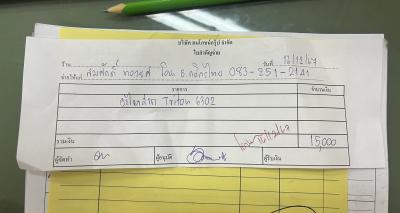 บริษัท สมโภชน์กรุ๊ป จำกัด
ใบสำคัญจ่าย
ร้าน วันที่ 12/12/67
จ่ายให้แก่ สมศักดิ์ ทองวงศ์ โอน ธ.กสิกรไทย 083-851-2141
รายการ จำนวนเงิน
Triton 6302
รวมเงิน 15,000
ผู้จัดทำ ผู้อนุมัติ ผู้รับเงิน